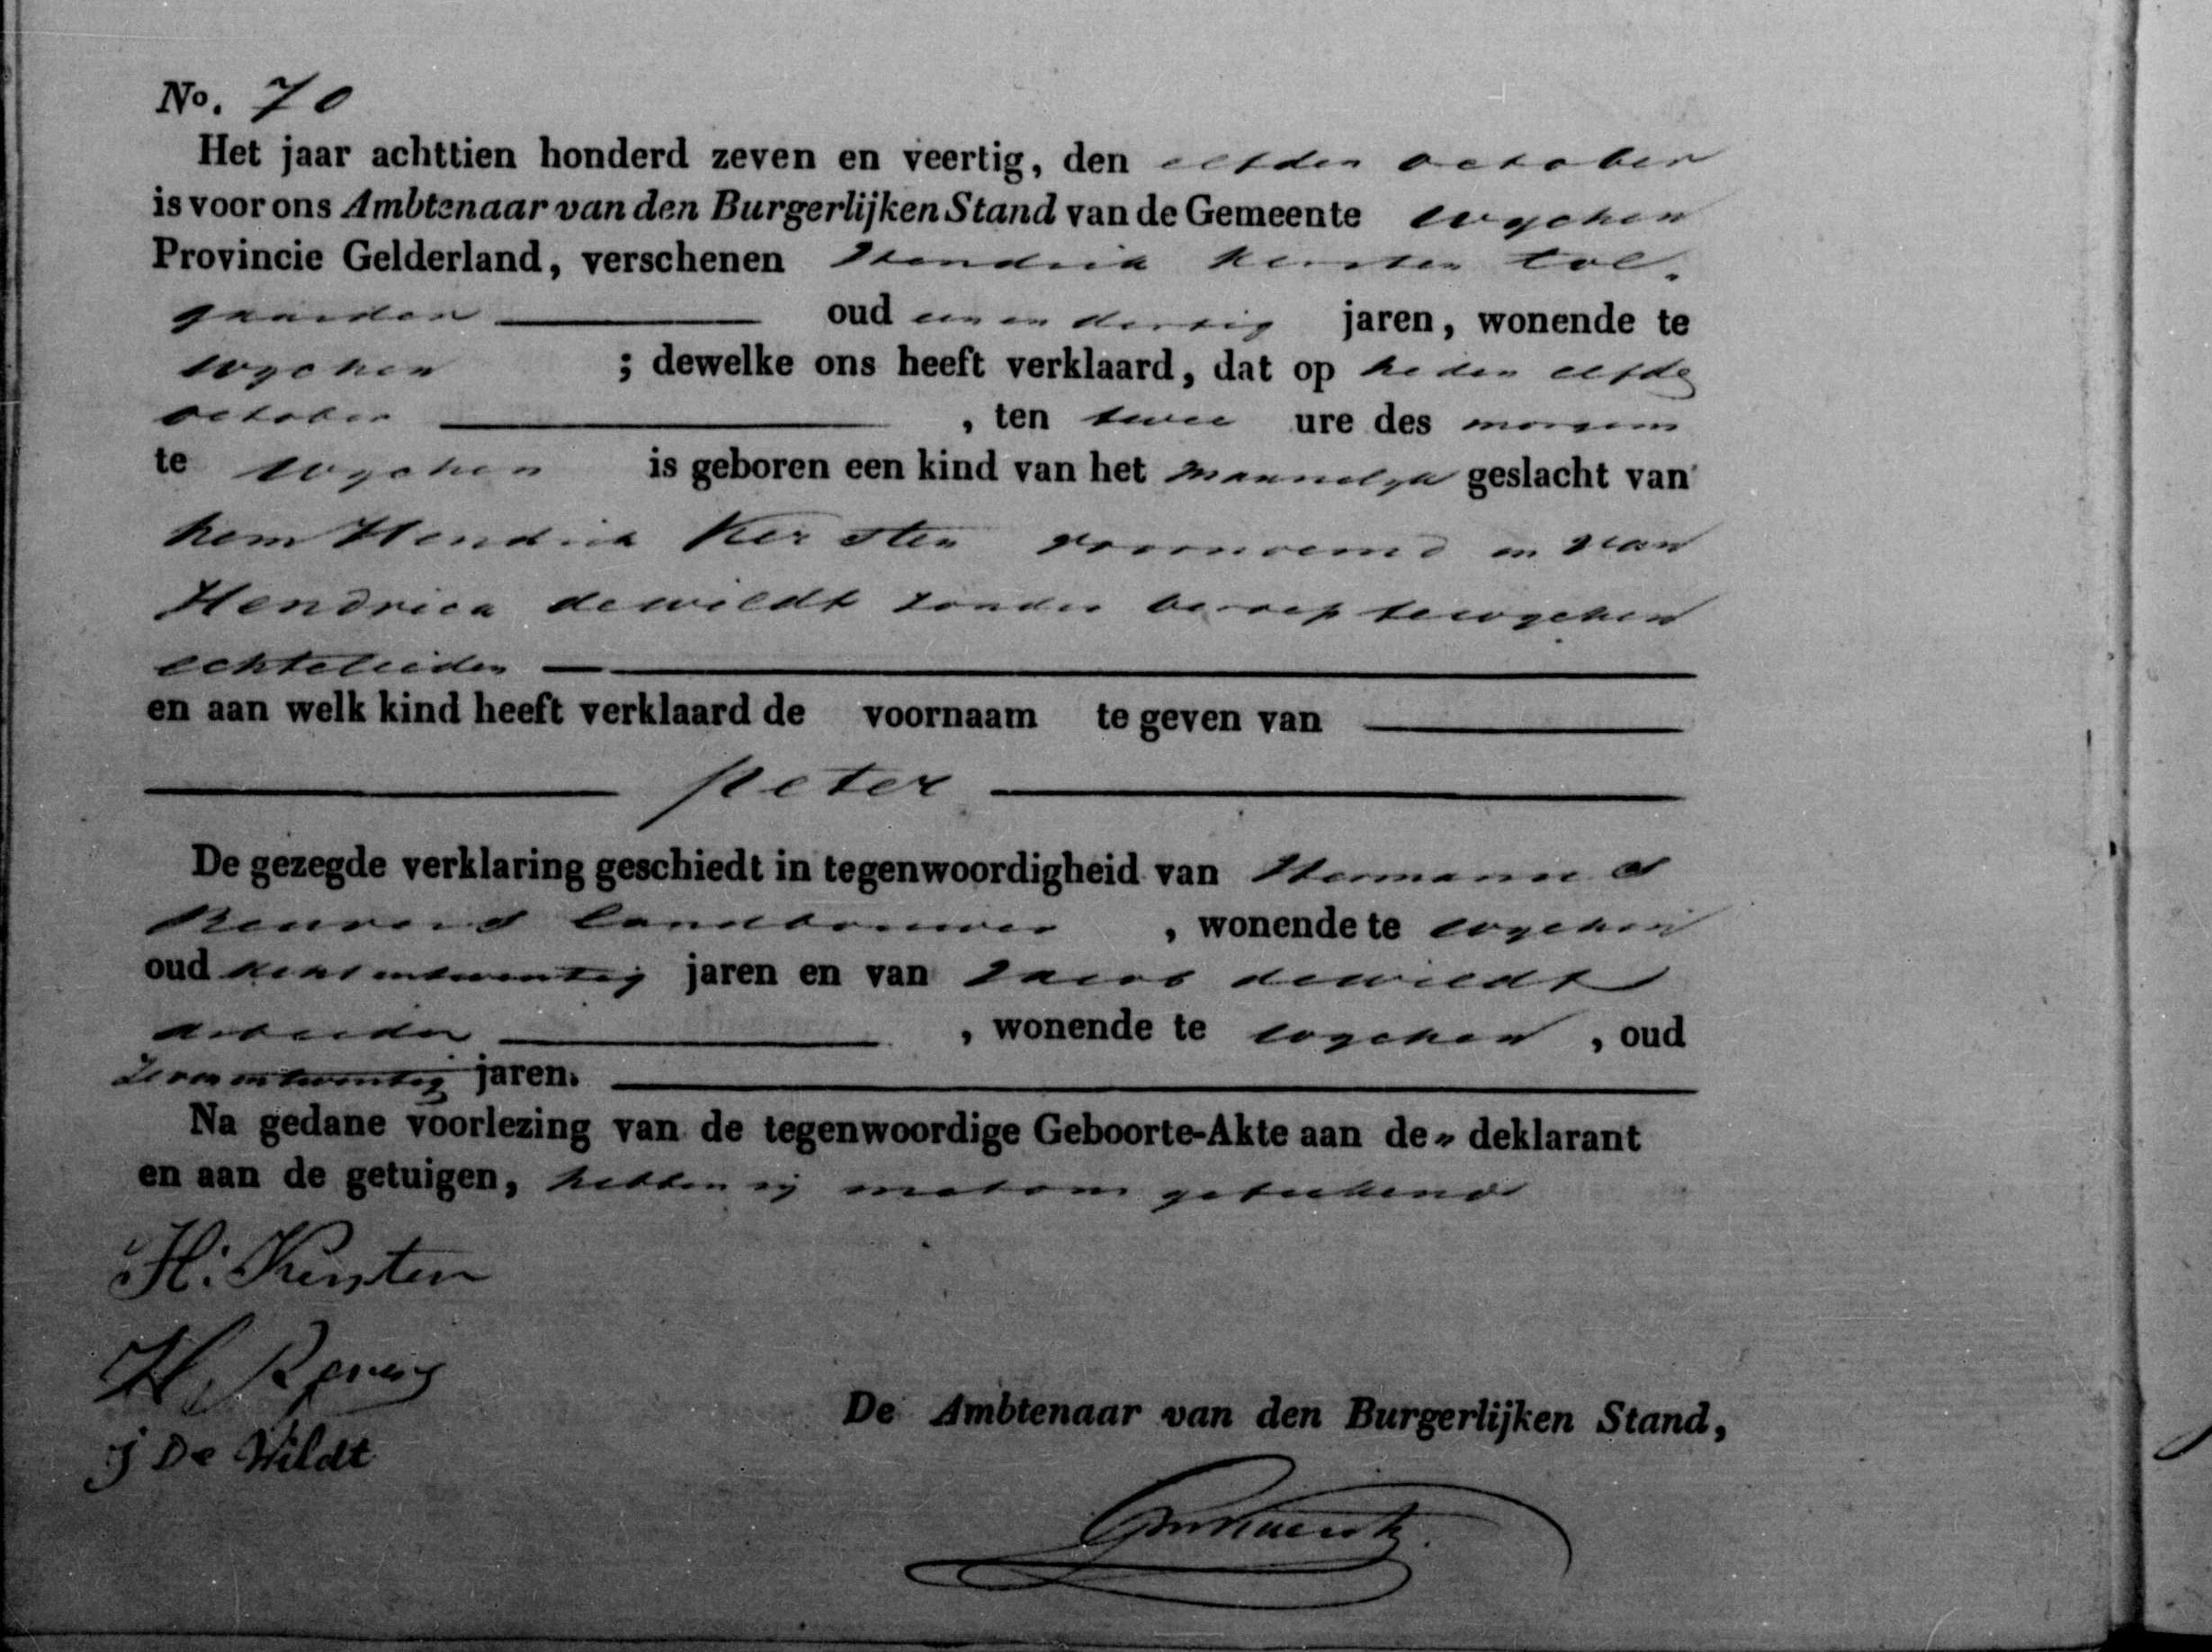 No. 70
Het jaar achttien honderd zeven en veertig, den elfden october
is voor ons Ambtenaar van den Burgerlijken Stand van de Gemeente Wychen
Provincie Gelderland, verschenen Hendrik Kersten tol-
gaarder oud een en dertig jaren, wonende te
Wychen ; dewelke ons heeft verklaard, dat op heden elfde
october , ten twee ure des morgens
te Wychen is geboren een kind van het mannelyk geslacht van
hem Hendrik Kersten voornoemd en van
Hendrica dewildt zonder beroep te Wychen
echtelieden
en aan welk kind heeft verklaard de voornaam te geven van
peter
De gezegde verklaring geschiedt in tegenwoordigheid van Hermanus
landbouwer , wonende te Wychen
oud acht en twentig jaren en van Jacob dewildt
arbeider , wonende te Wychen , oud
Zeven en twentig jaren.
Na gedane voorlezing van de tegenwoordige Geboorte-Akte aan de " deklarant
en aan de getuigen, hebben zy met ons getekend
H: Kersten
H.
J De Wildt
De Ambtenaar van den Burgerlijken Stand,